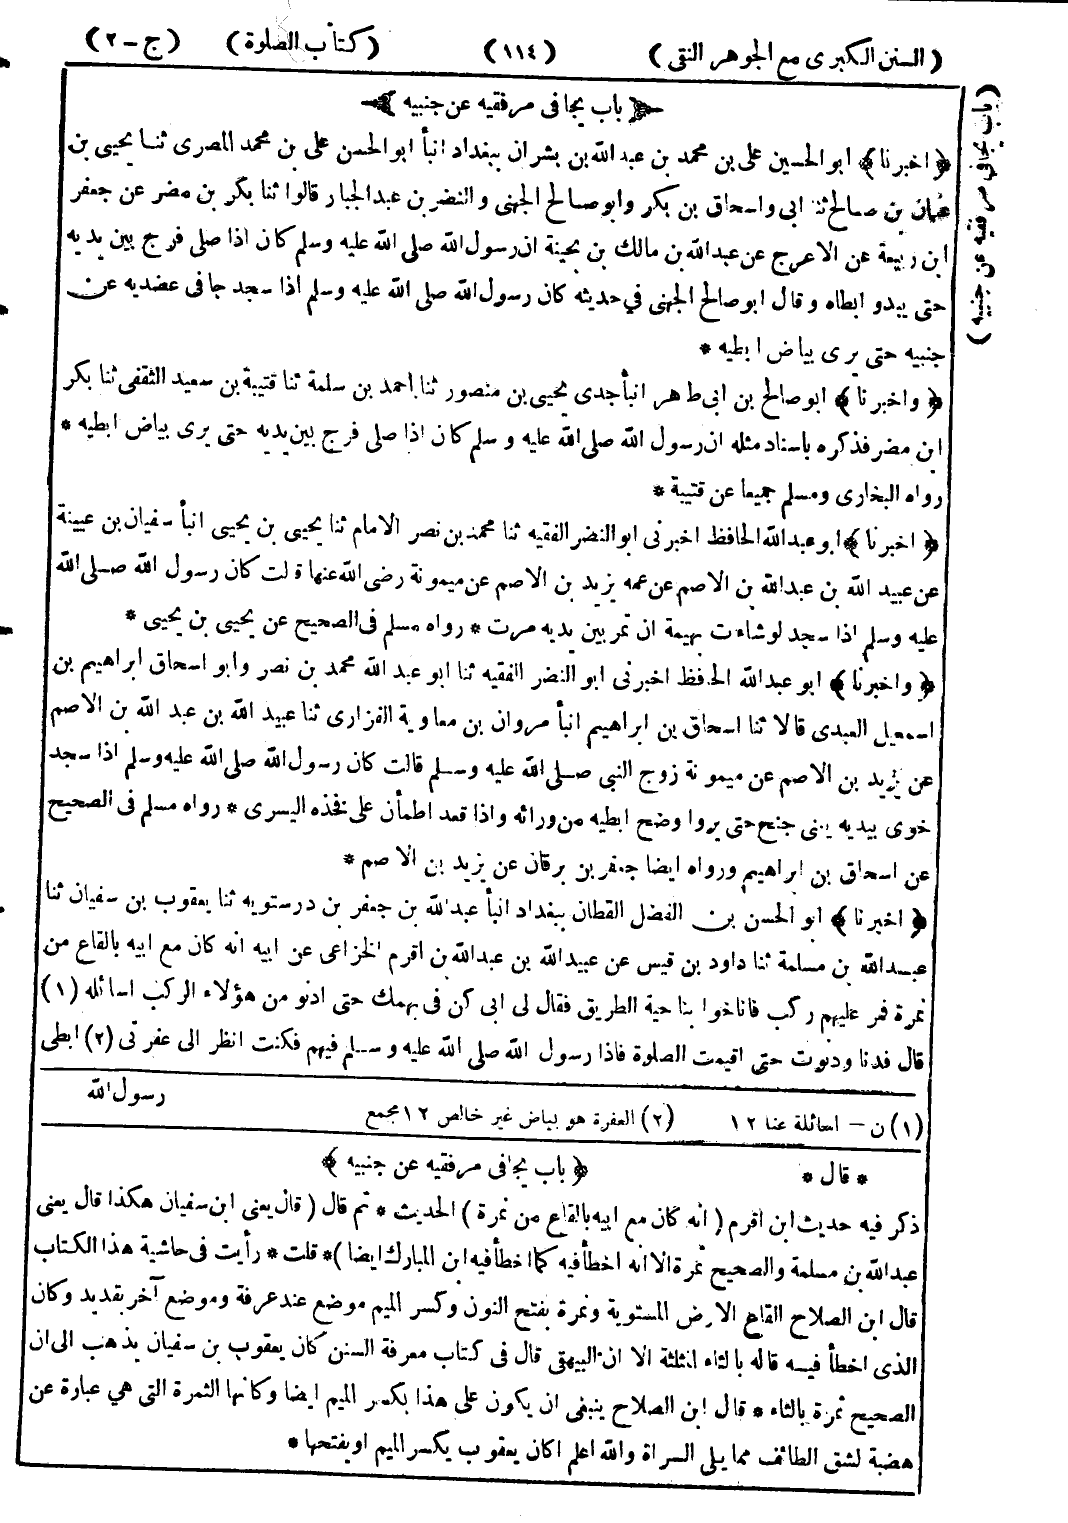 (السنن الكبرى مع الجوهر النقى) (١١٤) (كتاب الصلوة) (ج-٢)
(باب يجافى مرفقيه عن جنبيه)
﴿باب يجافى مرفقيه عن جنبيه﴾
﴿اخبرنا﴾ ابو الحسين على بن محمد بن عبدالله بن بشران ببغداد انبأ ابو الحسن على بن محمد المصرى ثنا يحيى بن
عثمان بن صالح ثنا ابى واسحاق بن بكر وابو صالح الجهنى والنضر بن عبدالجبار قالوا ثنا بكر بن مضر عن جعفر
ابن ربيعة عن الاعرج عن عبدالله بن مالك بن بحينة ان رسول الله صلى الله عليه وسلم كان اذا صلى فرج بين يديه
حتى يبدو ابطاه وقال ابو صالح الجهنى في حديثه كان رسول الله صلى الله عليه وسلم اذا سجد جافى عضديه عن
جنبيه حتى يرى بياض ابطيه *
﴿واخبرنا﴾ ابو صالح بن ابى طاهر انبأ جدى يحيى بن منصور ثنا احمد بن سلمة ثنا قتيبة بن سعيد الثقفى ثنا بكر
ابن مضر فذكره باسناد مثله ان رسول الله صلى الله عليه وسلم كان اذا صلى فرج بين يديه حتى يرى بياض ابطيه *
رواه البخارى ومسلم جميعا عن قتيبة *
﴿اخبرنا﴾ ابو عبدالله الحافظ اخبرنى ابو النضر الفقيه ثنا محمد بن نصر الامام ثنا يحيى بن يحيى انبأ سفيان بن عيينة
عن عبيد الله بن عبدالله بن الاصم عن عمه يزيد بن الاصم عن ميمونة رضى الله عنها قالت كان رسول الله صلى الله
عليه وسلم اذا سجد لو شاءت بهيمة ان تمر بين يديه مرت * رواه مسلم فى الصحيح عن يحيى بن يحيى *
﴿واخبرنا﴾ ابو عبدالله الحافظ اخبرنى ابو النضر الفقيه ثنا ابو عبد الله محمد بن نصر وابو اسحاق ابراهيم بن
اسمعيل العبدى قالا ثنا اسحاق بن ابراهيم انبأ مروان بن معاوية الفزارى ثنا عبيد الله بن عبد الله بن الاصم
عن يزيد بن الاصم عن ميمونة زوج النبى صلى الله عليه وسلم قالت كان رسول الله صلى الله عليه وسلم اذا سجد
خوى بيديه يعنى جنح حتى يروا وضح ابطيه من ورائه واذا قعد اطمأن على فخذه اليسرى * رواه مسلم فى الصحيح
عن اسحاق بن ابراهيم ورواه ايضا جعفر بن برقان عن يزيد بن الاصم *
﴿اخبرنا﴾ ابو الحسن بن الفضل القطان ببغداد انبأ عبدالله بن جعفر بن درستويه ثنا يعقوب بن سفيان ثنا
عبدالله بن مسلمة ثنا داود بن قيس عن عبيدالله بن عبدالله بن اقرم الخزاعى عن ابيه انه كان مع ابيه بالقاع من
نمرة فمر عليهم ركب فاناخوا بناحية الطريق فقال لى ابى كن فى بهمك حتى ادنو من هؤلاء الركب اسائله (١)
قال فدنا ودنوت حتى اقيمت الصلوة فاذا رسول الله صلى الله عليه وسلم فيهم فكنت انظر الى عفرتى (٢) ابطى
رسول الله
(١) ن - اسائلة عنا ١٢ (٢) العفرة هو بياض غير خالص ١٢ مجمع
* قال * ﴿باب يجافى مرفقيه عن جنبيه﴾
ذكر فيه حديث ابن اقرم (انه كان مع ابيه بالقاع من نمرة) الحديث * ثم قال (قال يعنى ابن سفيان هكذا قال يعنى
عبدالله بن مسلمة والصحيح ثمرة الا انه اخطأ فيه كما اخطأ فيه ابن المبارك ايضا) * قلت * رأيت فى حاشية هذا الكتاب
قال ابن الصلاح القاع الارض المستوية ونمرة بفتح النون وكسر الميم موضع عند عرفة وموضع آخر بقديد وكان
الذى اخطأ فيه قاله بالثاء المثلثة الا ان البيهقى قال فى كتاب معرفة السنن كان يعقوب بن سفيان يذهب الى ان
الصحيح ثمرة بالثاء * قال ابن الصلاح ينبغى ان يكون على هذا بكسر الميم ايضا وكانها الثمرة التى هي عبارة عن
هضبة لشق الطائف مما يلى السراة والله اعلم اكان يعقوب يكسر الميم او يفتحها *